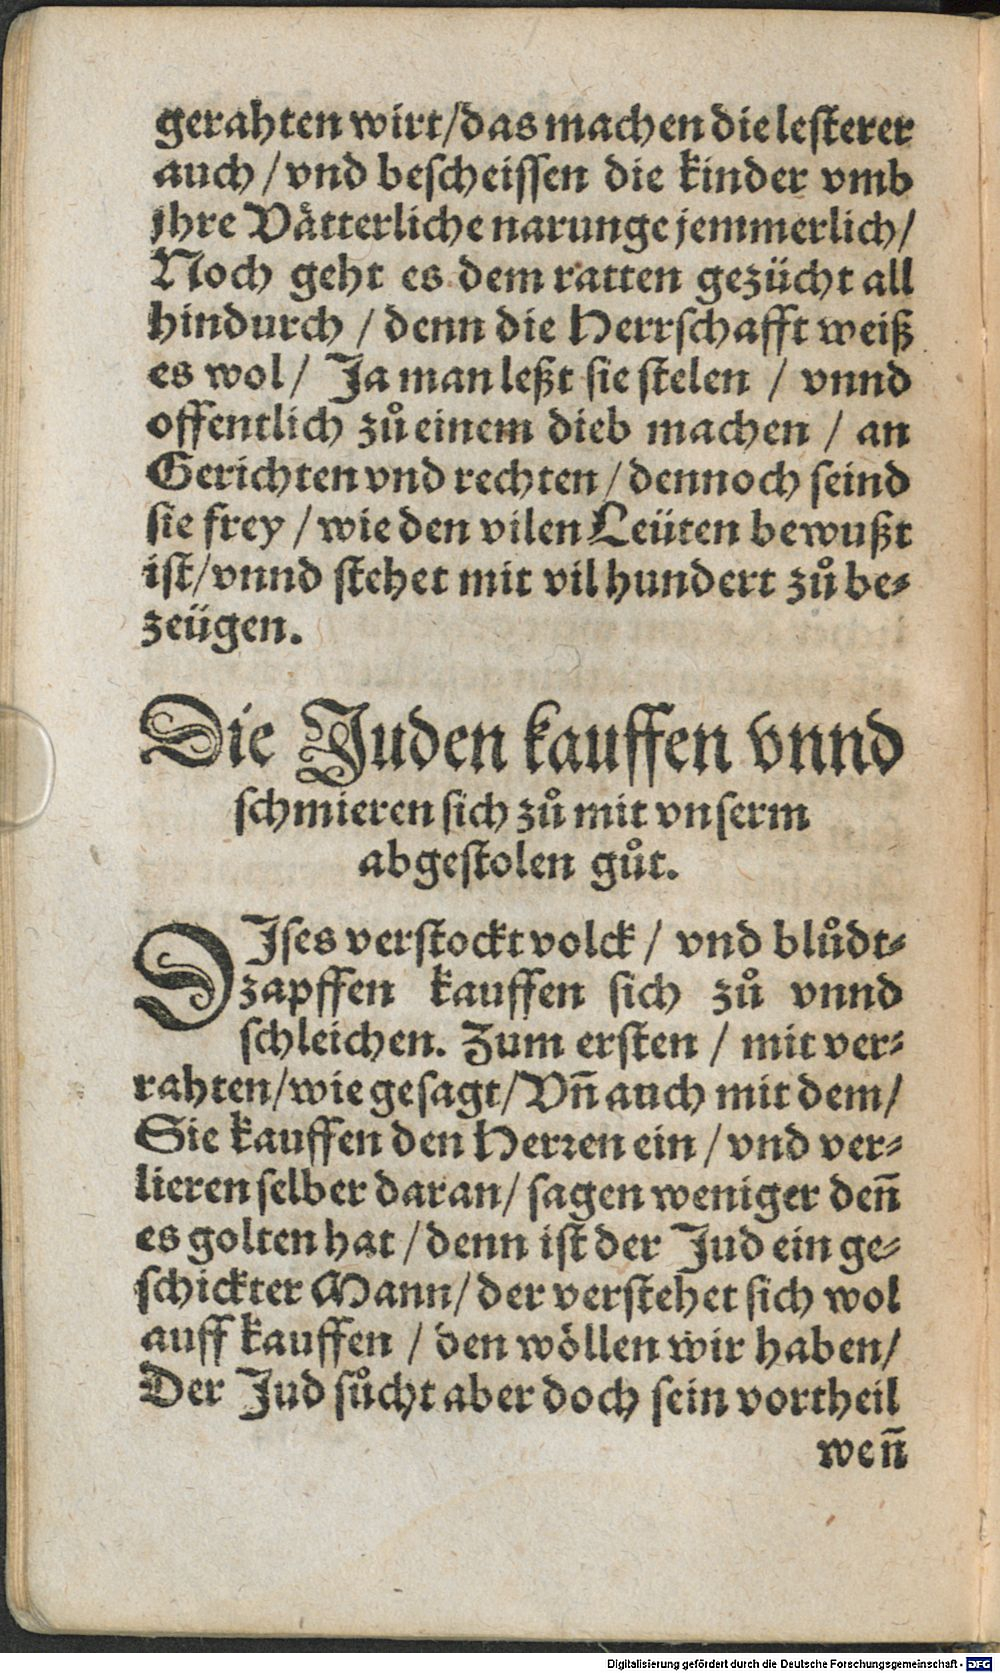 gerahten wirt/das machen die lesterer
auch / vnd bescheissen die kinder vmb
jhre Vaͤtterliche narunge jemmerlich/
Noch geht es dem ratten gezücht all
hindurch / denn die Herrschafft weiß
es wol / Ja man leßt sie stelen / vnnd
offentlich zuͦ einem dieb machen / an
Gerichten vnd rechten / dennoch seind
sie frey / wie den vilen Leüten bewußt
ist/vnnd stehet mit vil hundert zuͦ be⸗
zeügen.
Die Juden kauffen vnnd
schmieren sich zuͦ mit vnserm
abgestolen guͦt.
DIses verstockt volck / vnd bluͦdt⸗
zapffen kauffen sich zuͦ vnnd
schleichen. Zum ersten / mit ver⸗
rahten/wie gesagt/Vñ auch mit dem/
Sie kauffen den Herꝛen ein / vnd ver⸗
lieren selber daran/ sagen weniger deñ
es golten hat / denn ist der Jud ein ge⸗
schickter Mann/ der verstehet sich wol
auff kauffen / den woͤllen wir haben/
Der Jud suͦcht aber doch sein vortheil
weñ
Digitalisierung gefördert durch die Deutsche Forschungsgemeinschaft - DFG